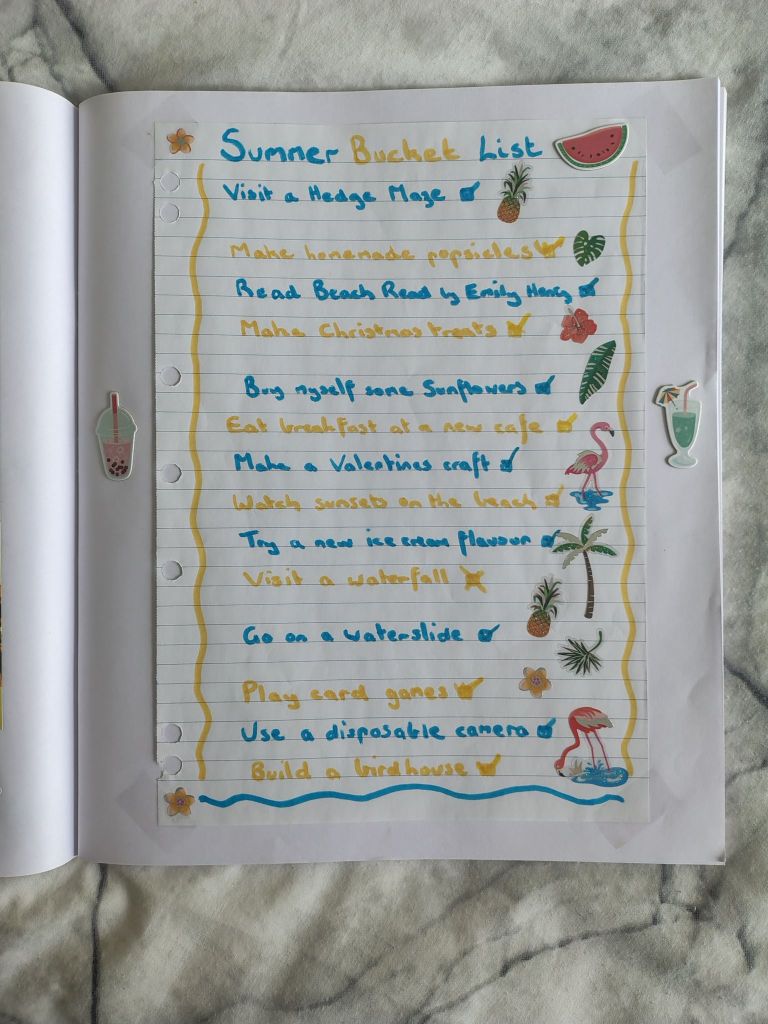 Summer Bucket List
Visit a Hedge Maze
Make homemade popsicles
Read Beach Read by Emily Henry
Make Christmas treats
Buy myself some Sunflowers
Eat breakfast at a new cafe
Make a Valentines craft
Watch sunsets on the beach
Try a new ice cream flavour
Visit a waterfall
Go on a waterslide
Play card games
Use a disposable camera
Build a birdhouse